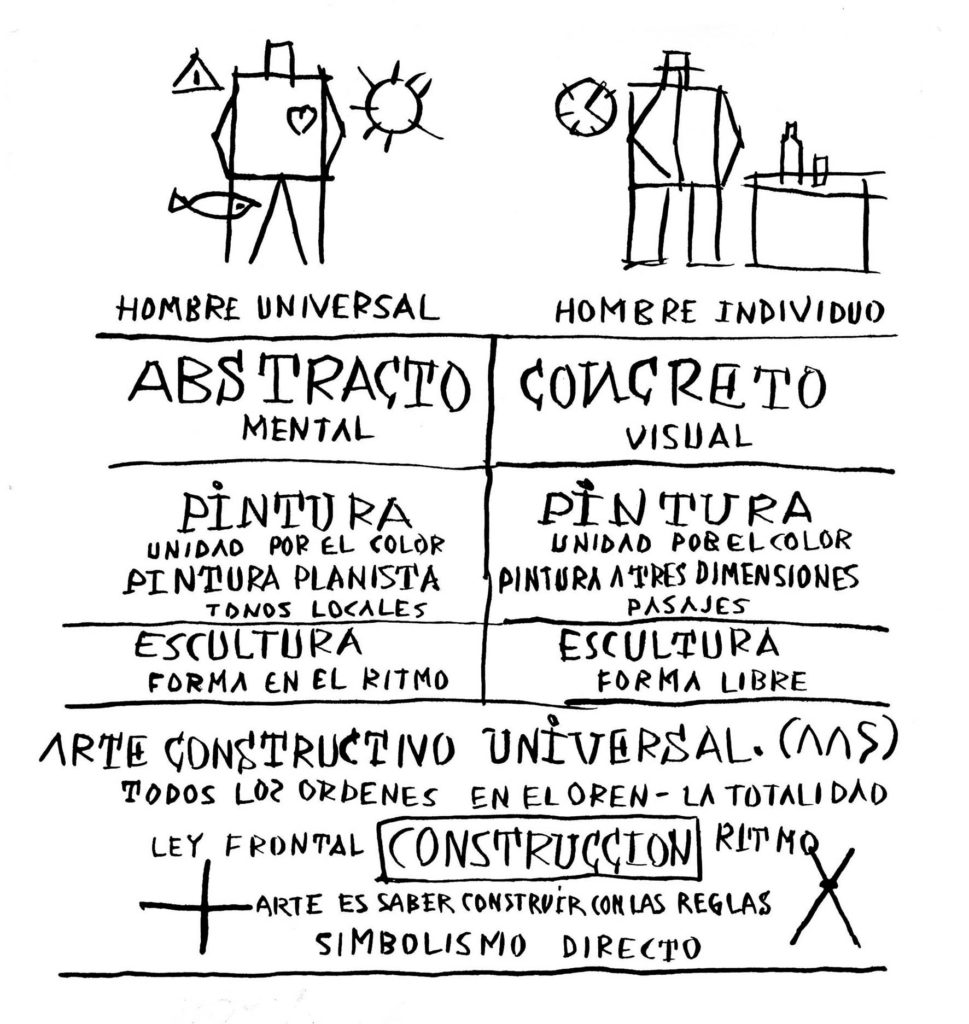 HOMBRE UNIVERSAL
HOMBRE INDIVIDUO
ABSTRACTO
MENTAL
CONCRETO
VISUAL
PINTURA
UNIDAD POR EL COLOR
PINTURA PLANISTA
TONOS LOCALES
PINTURA
UNIDAD POR EL COLOR
PINTURA A TRES DIMENSIONES
PASAJES
ESCULTURA
FORMA EN EL RITMO
ESCULTURA
FORMA LIBRE
ARTE CONSTRUCTIVO UNIVERSAL. (AAS)
TODOS LOS ORDENES EN EL OREN - LA TOTALIDAD
LEY FRONTAL CONSTRUCCION RITMO
ARTE ES SABER CONSTRUIR CON LAS REGLAS
SIMBOLISMO DIRECTO